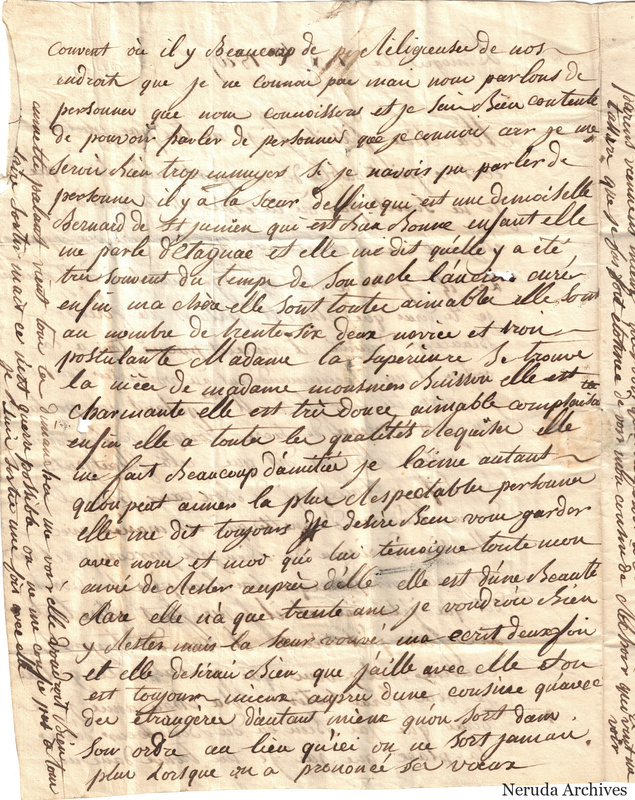 Couvent où il y Beaucoup de Réligieuse de nos
endroit que je ne connoi pas mais nous parlons de
personnes que nous connoissons et je suis Bien contente
de pouvoir parler de personnes que je connoi car je me
serois Bien trop ennuyers si je navois pu parler de
personne il y a la Sœur delfine qui est une demoiselle
Bernard de St junien qui est Bonne enfant elle
me parle d'Etagnac et elle me dit quelle y a été
très souvent du temps de son oncle lancien curé
enfin ma chere elle sont toute aimable elle sont
au nombre de trente-six deux novice et trois
postulante Madame la Superieure se trouve
la niéce de madame Buisson elle est
charmante elle est très douce aimable complaisante
enfin elle a toute les qualités Requise elle
me fait Beaucoup d'amitiér je l'aime autant
qu'on peut aimer la plus Respectable personne
elle me dit toujours je desire Bien vous garder
avec nous et moi qui lui témoigne toute mon
envie de Rester auprès d'elle elle est d'une Beauté
Rare elle n'a que trente ans je voudrois Bien
y Rester mais la sœur ma ecrit deux fois
et elle desirais Bien que j'aille avec elle et on
est toujours mieux auprès d'une cousine qu'avec
des étrangère d'autant mieux qu'on sort dans
son ordre au lieu qu'ici on ne sort jamais
plus Lorsque on a prononcé ses vœux
annette vient tous la dimanche me voir elle voudrait Bien
faire sortir mais ce n'est guere possible on ne me
je suis sortie une fois avec elle
que je fus fort etonnée d'voir notre cousin de me
voir
Neruda Archives